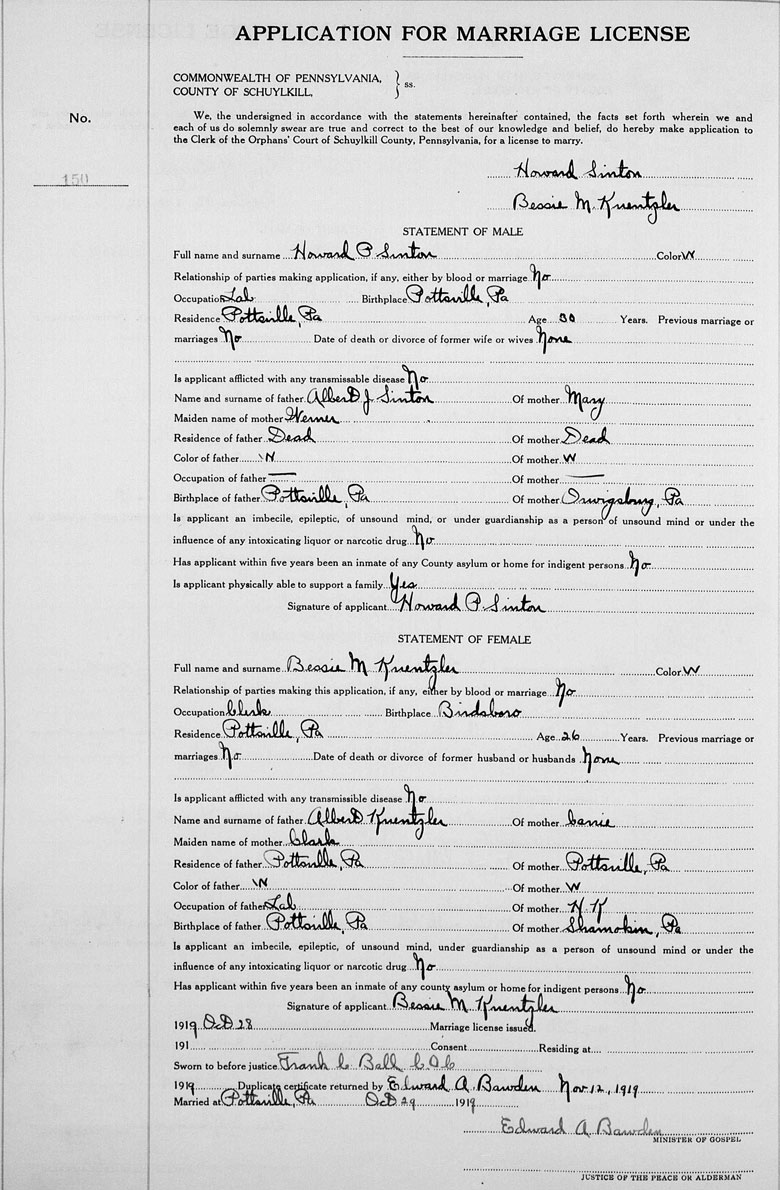 APPLICATION FOR MARRIAGE LICENSE
COMMONWEALTH OF PENNSYLVANIA,
COUNTY OF SCHUYLKILL, } ss.
No.
150
We, the undersigned in accordance with the statements hereinafter contained, the facts set forth wherein we and
each of us do solemnly swear are true and correct to the best of our knowledge and belief, do hereby make application to
the Clerk of the Orphans' Court of Schuylkill County, Pennsylvania, for a license to marry.
Howard Sinton
Bessie M. Kuentzler
STATEMENT OF MALE
Full name and surname Howard P Sinton Color W
Relationship of parties making application, if any, either by blood or marriage No
Occupation Lab Birthplace Pottsville, Pa
Residence Pottsville, Pa Age 30 Years. Previous marriage or
marriages No Date of death or divorce of former wife or wives None
Is applicant afflicted with any transmissable disease No
Name and surname of father Albert J Sinton Of mother Mary
Maiden name of mother Werner
Residence of father Dead Of mother Dead
Color of father W Of mother W
Occupation of father — Of mother —
Birthplace of father Pottsville, Pa Of mother Orwigsburg, Pa
Is applicant an imbecile, epileptic, of unsound mind, or under guardianship as a person of unsound mind or under the
influence of any intoxicating liquor or narcotic drug No
Has applicant within five years been an inmate of any County asylum or home for indigent persons No
Is applicant physically able to support a family Yes
Signature of applicant Howard P. Sinton
STATEMENT OF FEMALE
Full name and surname Bessie M Kuentzler Color W
Relationship of parties making this application, if any, either by blood or marriage No
Occupation Clerk Birthplace Birdsboro
Residence Pottsville, Pa Age 26 Years. Previous marriage or
marriages No Date of death or divorce of former husband or husbands None
Is applicant afflicted with any transmissible disease No
Name and surname of father Albert Kuentzler Of mother Carrie
Maiden name of mother Clark
Residence of father Pottsville, Pa Of mother Pottsville, Pa
Color of father W Of mother W
Occupation of father Lab Of mother H K
Birthplace of father Pottsville, Pa Of mother Shamokin, Pa
Is applicant an imbecile, epileptic, of unsound mind, under guardianship as a person of unsound mind or under the
influence of any intoxicating liquor or narcotic drug No
Has applicant within five years been an inmate of any county asylum or home for indigent persons No
Signature of applicant Bessie M Kuentzler
1919 Oct 28 Marriage license issued.
191 Consent Residing at
Sworn to before justice Frank C Ball C O C
1919 Duplicate certificate returned by Edward A. Bawden Nov. 12, 1919
Married at Pottsville, Pa Oct 29 1919
Edward A Bawden
MINISTER OF GOSPEL
JUSTICE OF THE PEACE OR ALDERMAN